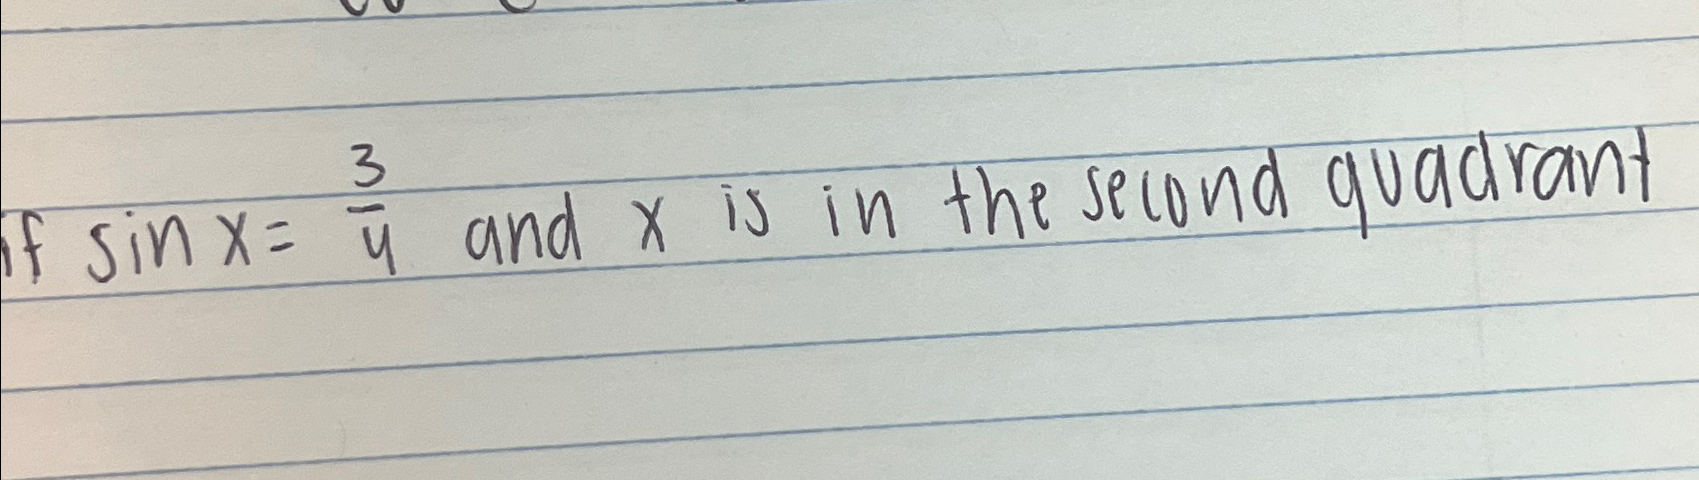 if sin x = 3/4 and x is in the second quadrant